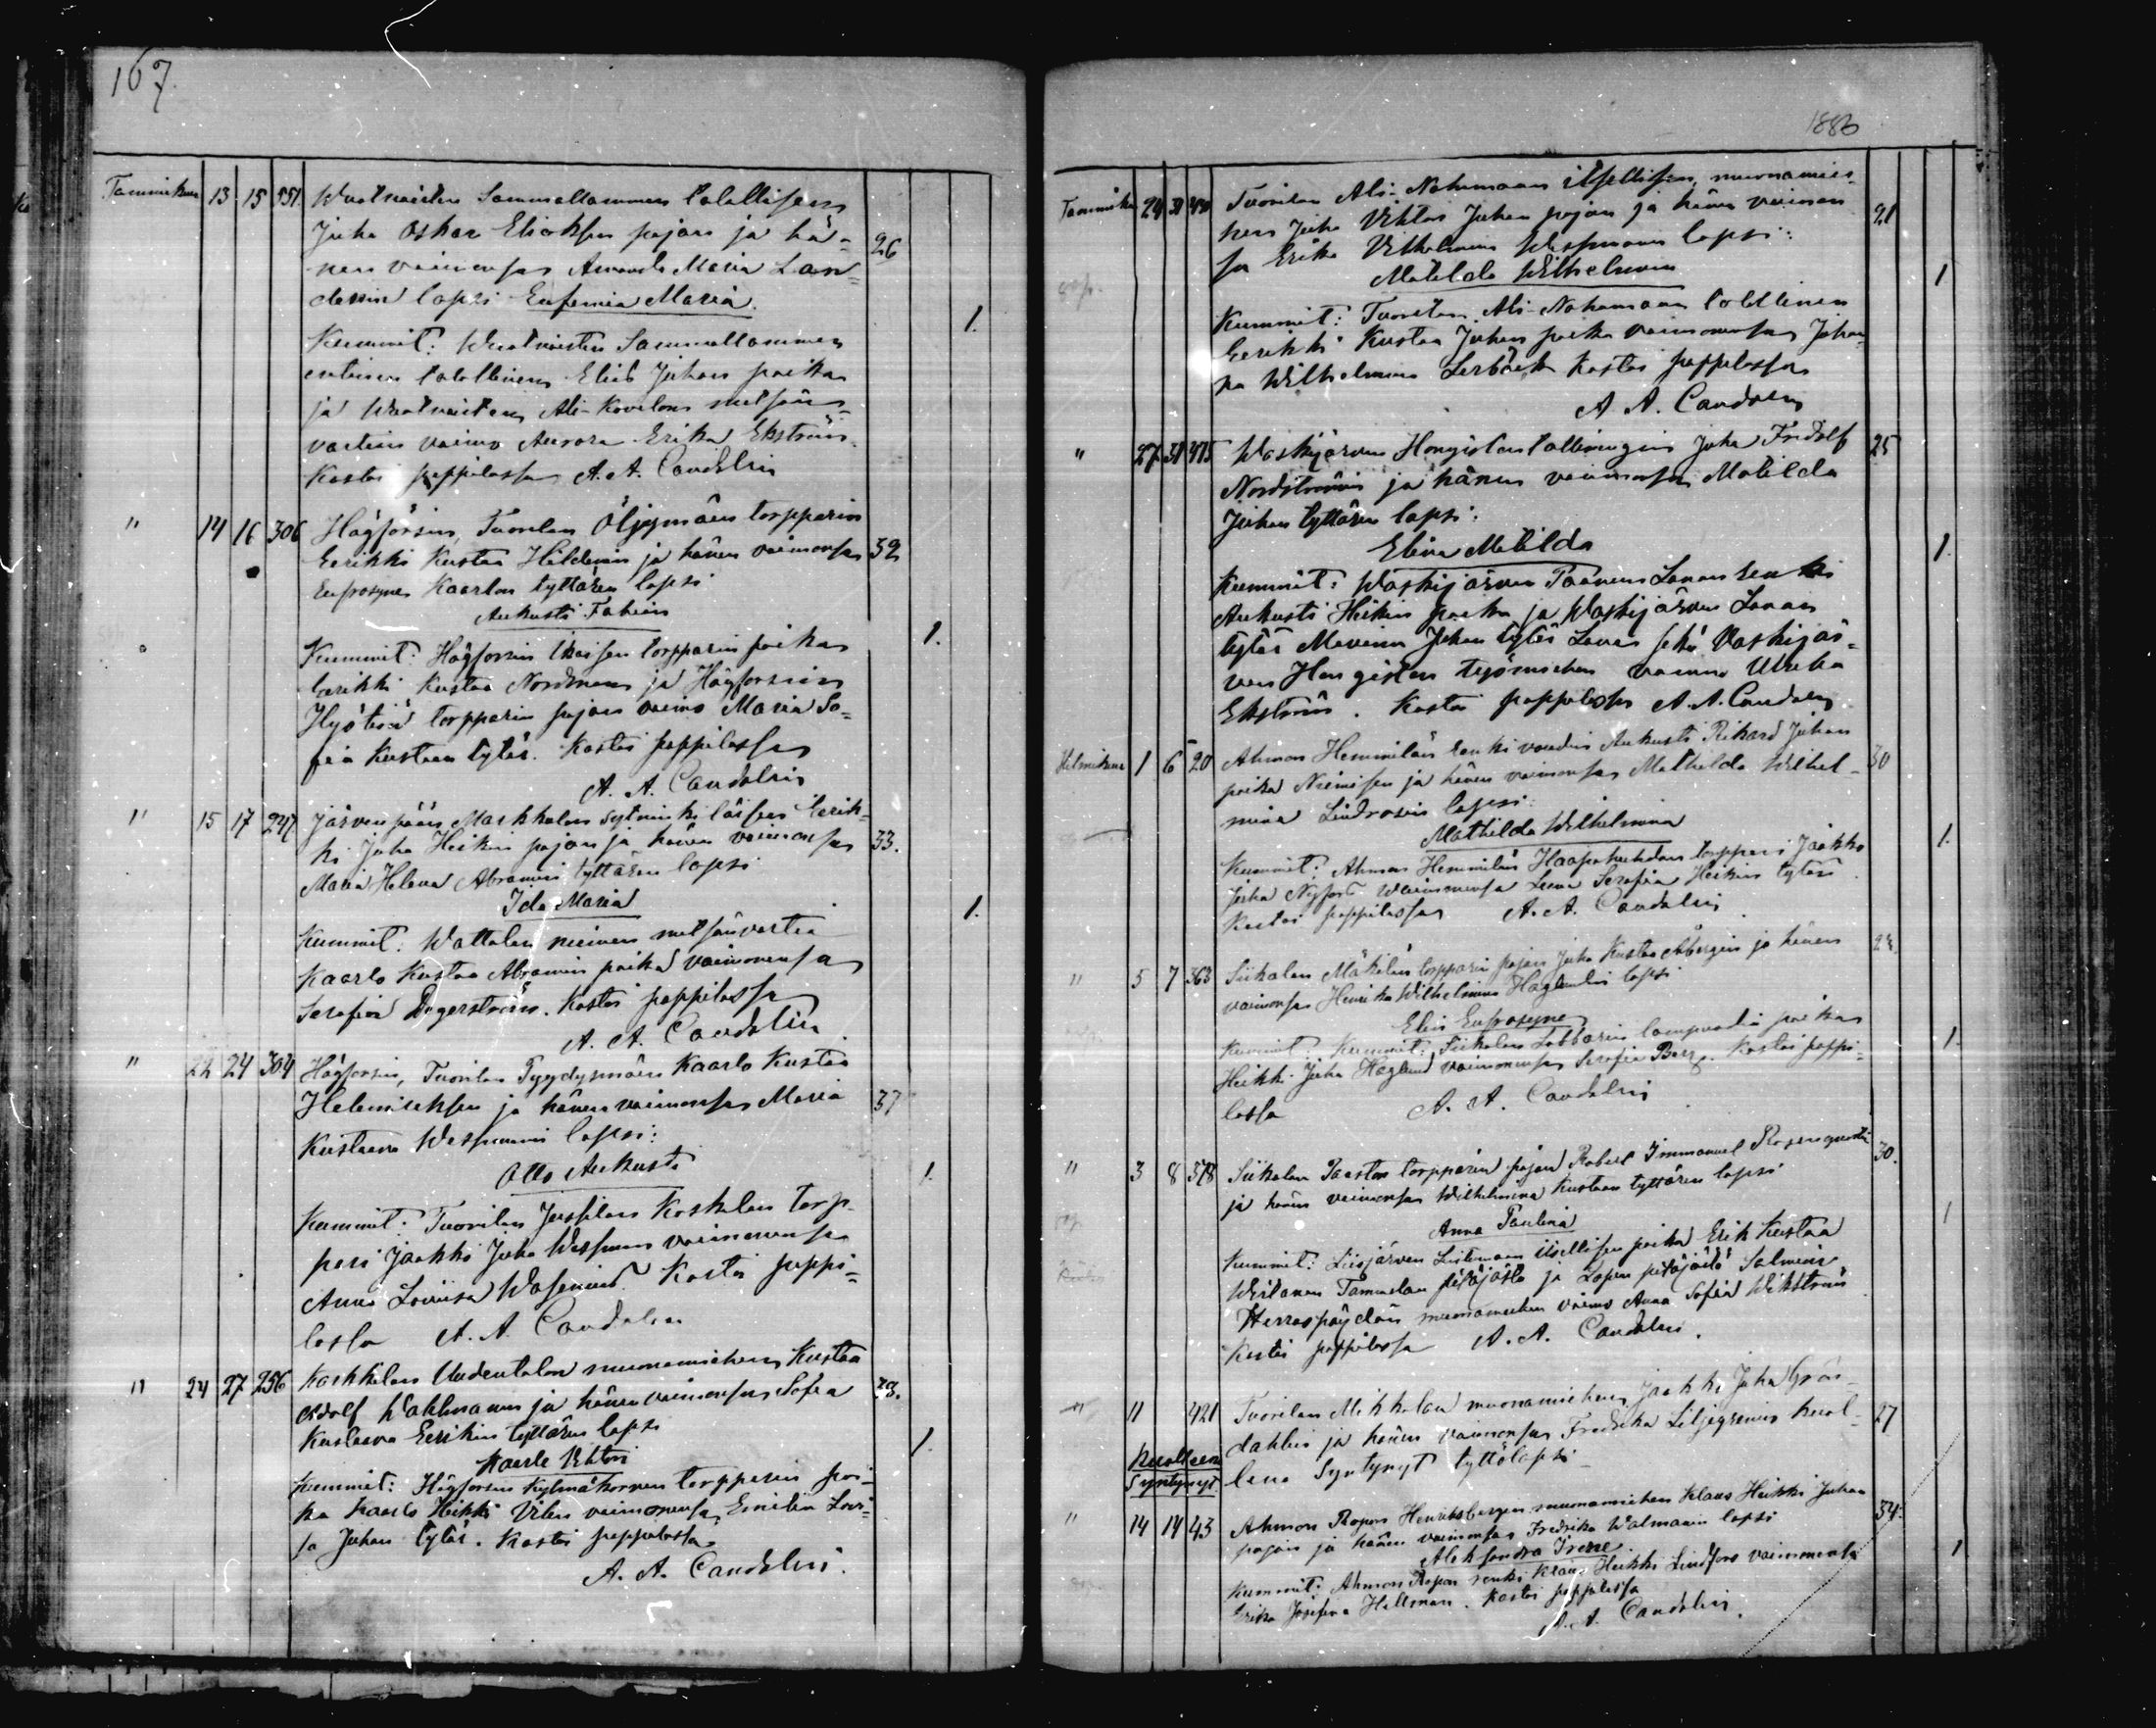 167.
Tammikuu 13 15 551. Wuolteisten Sammallammen talollisen
Juha Oskar Eliaksen pojan ja hä- 26
nen vaimonsa Amanda Maria Lan-
denin lapsi Eufemia Maria.
1.
Kummit: Wuolteisten Sammallammen
entinen talollinen Elias Juhan poika
ja Wuolteisten Ali-Kovelons metsän-
vartian vaimo Aurora Erika Ekström.
Kastoi pappilassa A. A. Candolin
" 14 16 306 Högforsin, Tuorilan Öljymäen torpparin
Eerikki Kustaa Hildenin ja hänen vaimonsa 32
Eufrosyne Kaarlon tyttären lapsi
Aukusti Fabian
1.
Kummit: Högforsin torpparin poika
Eerikki Kustaa Nordman ja Högforsin
Hyötiön torpparin pojan vaimo Maria So-
fia Kustaan tytär. Kastoi pappilassa
A. A. Candolin
" 15 17 247 Järvenpään Markkolan Eerik-
ki Juha Heikin pojan ja hänen vaimonsa 33.
Maria Helena Abramin tyttären lapsi
Ida Maria
1.
Kummit: Wattolan niemen metsänvartia
Kaarlo Kustaa Abramin poika vaimonensa
Serafia Dagerström. Kastoi pappilassa
A. A. Candolin
" 22 24 304 Högforsin, Tuorilan Kaarlo Kustaa
ja hänen vaimonsa Maria 37
Kustaava Wessmanin lapsi:
Otto Aukusti
1.
Kummit: Tuorilan Jussilan Koskelan torp-
pari Jaakko Juha Wessman vaimonensa
Anna Lovisa Wasenius. Kastoi pappi-
lassa A. A. Candolin
" 24 27 256 Karkkilan Uudentalon muonamiehen Kustaa
Adolf Wahlmanin ja hänen vaimonsa Sofia 29.
Kustaava Eerikin tyttären lapsi
1.
Kaarlo Viktori
Kummit: Högforsin Kylmäkorven torpparin poi-
ka Kaarlo Heikki Vilen vaimonensa Emilia Lovi-
sa Juhan tytär. Kastoi pappilassa
A. A. Candolin.
1886
Tammikuu 24 31 Tuorilan Ali-Nahamaan itsellisen, muonamie-
hen Juha Viktor Juhan pojan ja hänen vaimon- 21
sa Erika Vilhelmina Wessmanin lapsi:
Matilda Wilhelmina
1
Kummit: Tuorilan Ali-Nahamaan talollinen
Eerikki Kustaa Juhan poika vaimonensa Johan-
na Wilhelmina Lerbäck Kastoi pappilassa
A. A. Candolin
" 27 31 Waskijärven Hongiston Juha Fridolf 25
Nordströmin ja hänen vaimonsa Matilda
Juhan tyttären lapsi:
Elina Matilda
1.
Kummit: Waskijärven Paanusen Lanan renki
Aukusti Heikin poika ja Waskijärven Lanan
tytär Maria Juhan tytär Lanan sekä Vaskijär-
ven Hongiston työmiehen vaimo Ulrika
Ekström. Kastoi pappilassa A. A. Candolin
Helmikuu 1 6 20 Ahmon Hemmilän renki voudin Aukusti Rikard Juhan 30
poika Niemisen ja hänen vaimonsa Mathilda Wilhel-
mina Lindrosin lapsi:
Mathilda Wilhelmina
1.
Kummit: Ahmon Hemmilän Haapahuhdan torppari Jaakko
Juha Nyfors vaimonensa Leena Serafia Heikin tytär
Kastoi pappilassa A. A. Candolin
" 5 7 363 Siikalan Mäkilän torpparin pojan Juha Kustaa ja hänen
vaimonsa Henrika Wilhelmina Haglundin lapsi
Elin Eufrosyne
1.
Kummit: Kummit: Siikalan lampuodin poika
Heikki Juha Haglund vaimonensa Serafia Berg. Kastoi pappi-
lassa A. A. Candolin
" 3 8 378 Siikalan torpparin pojan Robert Immanuel Rosenqvistin 30.
ja hänen vaimonsa Wilhelmina Kustaan tyttären lapsi
Anna Paulina
1
Kummit: Liesjärven itsellisen poika Erik Kustaa
Tammelan pitäjästä ja Lopen pitäjästä Salmein
Herraspöydän muonamiehen vaimo Anna Sofia Wikström
Kastoi pappilassa A. A. Candolin.
" 11 421 Tuorilan Mikkolan muonamiehen Jaakko Juha Grön-
dahlin ja hänen vaimonsa Fredrika Liljegrenin kuol- 27
Kuolleena
Syntynyt
lena Syntynyt tyttölapsi
" 14 14 43 Ahmon Ropon Henriksbergin muonamiehen Klaus Heikki Juhan 34.
pojan ja hänen vaimonsa Fredrika Walmanin lapsi
Aleksandra Irene.
1
Kummit: Ahmon Ropon renki Klaus Heikki Lindfors vaimonensa
Erika Josefina Hellman. Kastoi pappilassa
A. A. Candolin.